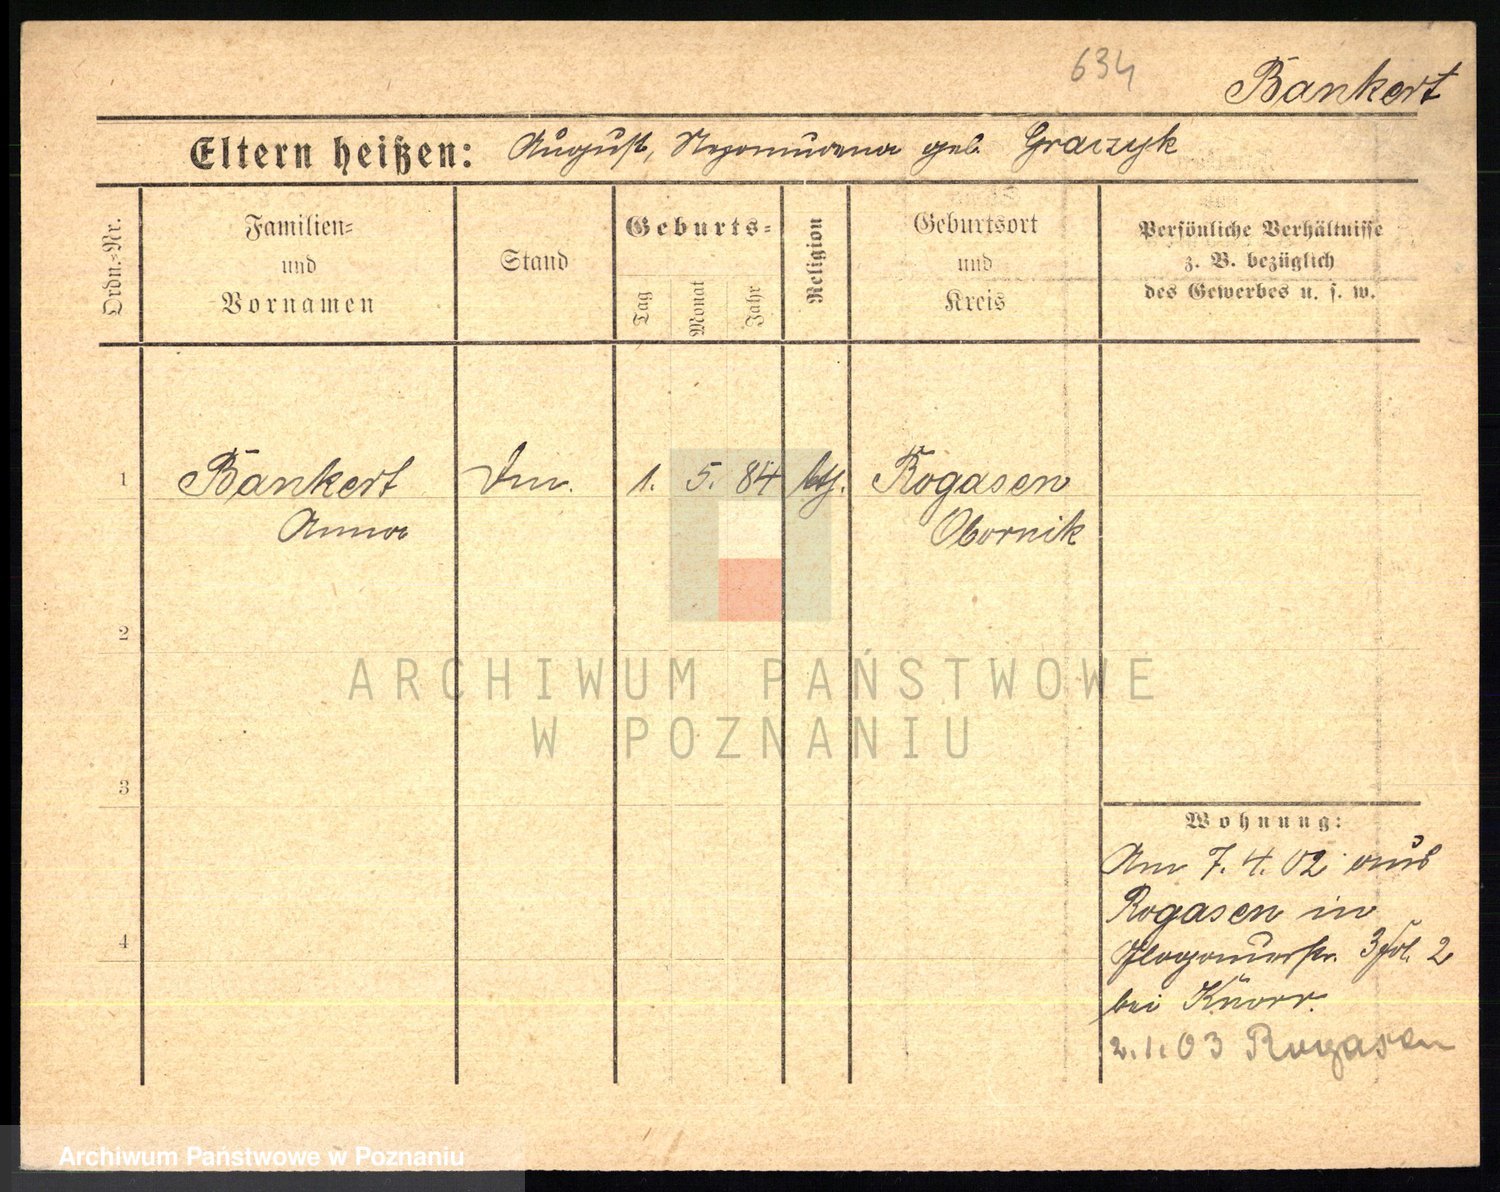 634
Bankert
Eltern heißen: August, Nepomucena geb. Graczyk
Ordn.-Nr.
Familien-
und
Vornamen
Stand
Geburts-
Tag
Monat
Jahr
Religion
Geburtsort
und
Kreis
Persönliche Verhältnisse
z. B. bezüglich
des Gewerbes u. s. w.
1 Bankert 1. 5. 84 Rogasen
Anna Obornik
2
3
4
Wohnung:
Am 7. 4. 02 aus
Rogasen in
2
bei Knorr.
2.1.03 Rogasen
ARCHIWUM PAŃSTWOWE
W POZNANIU
Archiwum Państwowe w Poznaniu